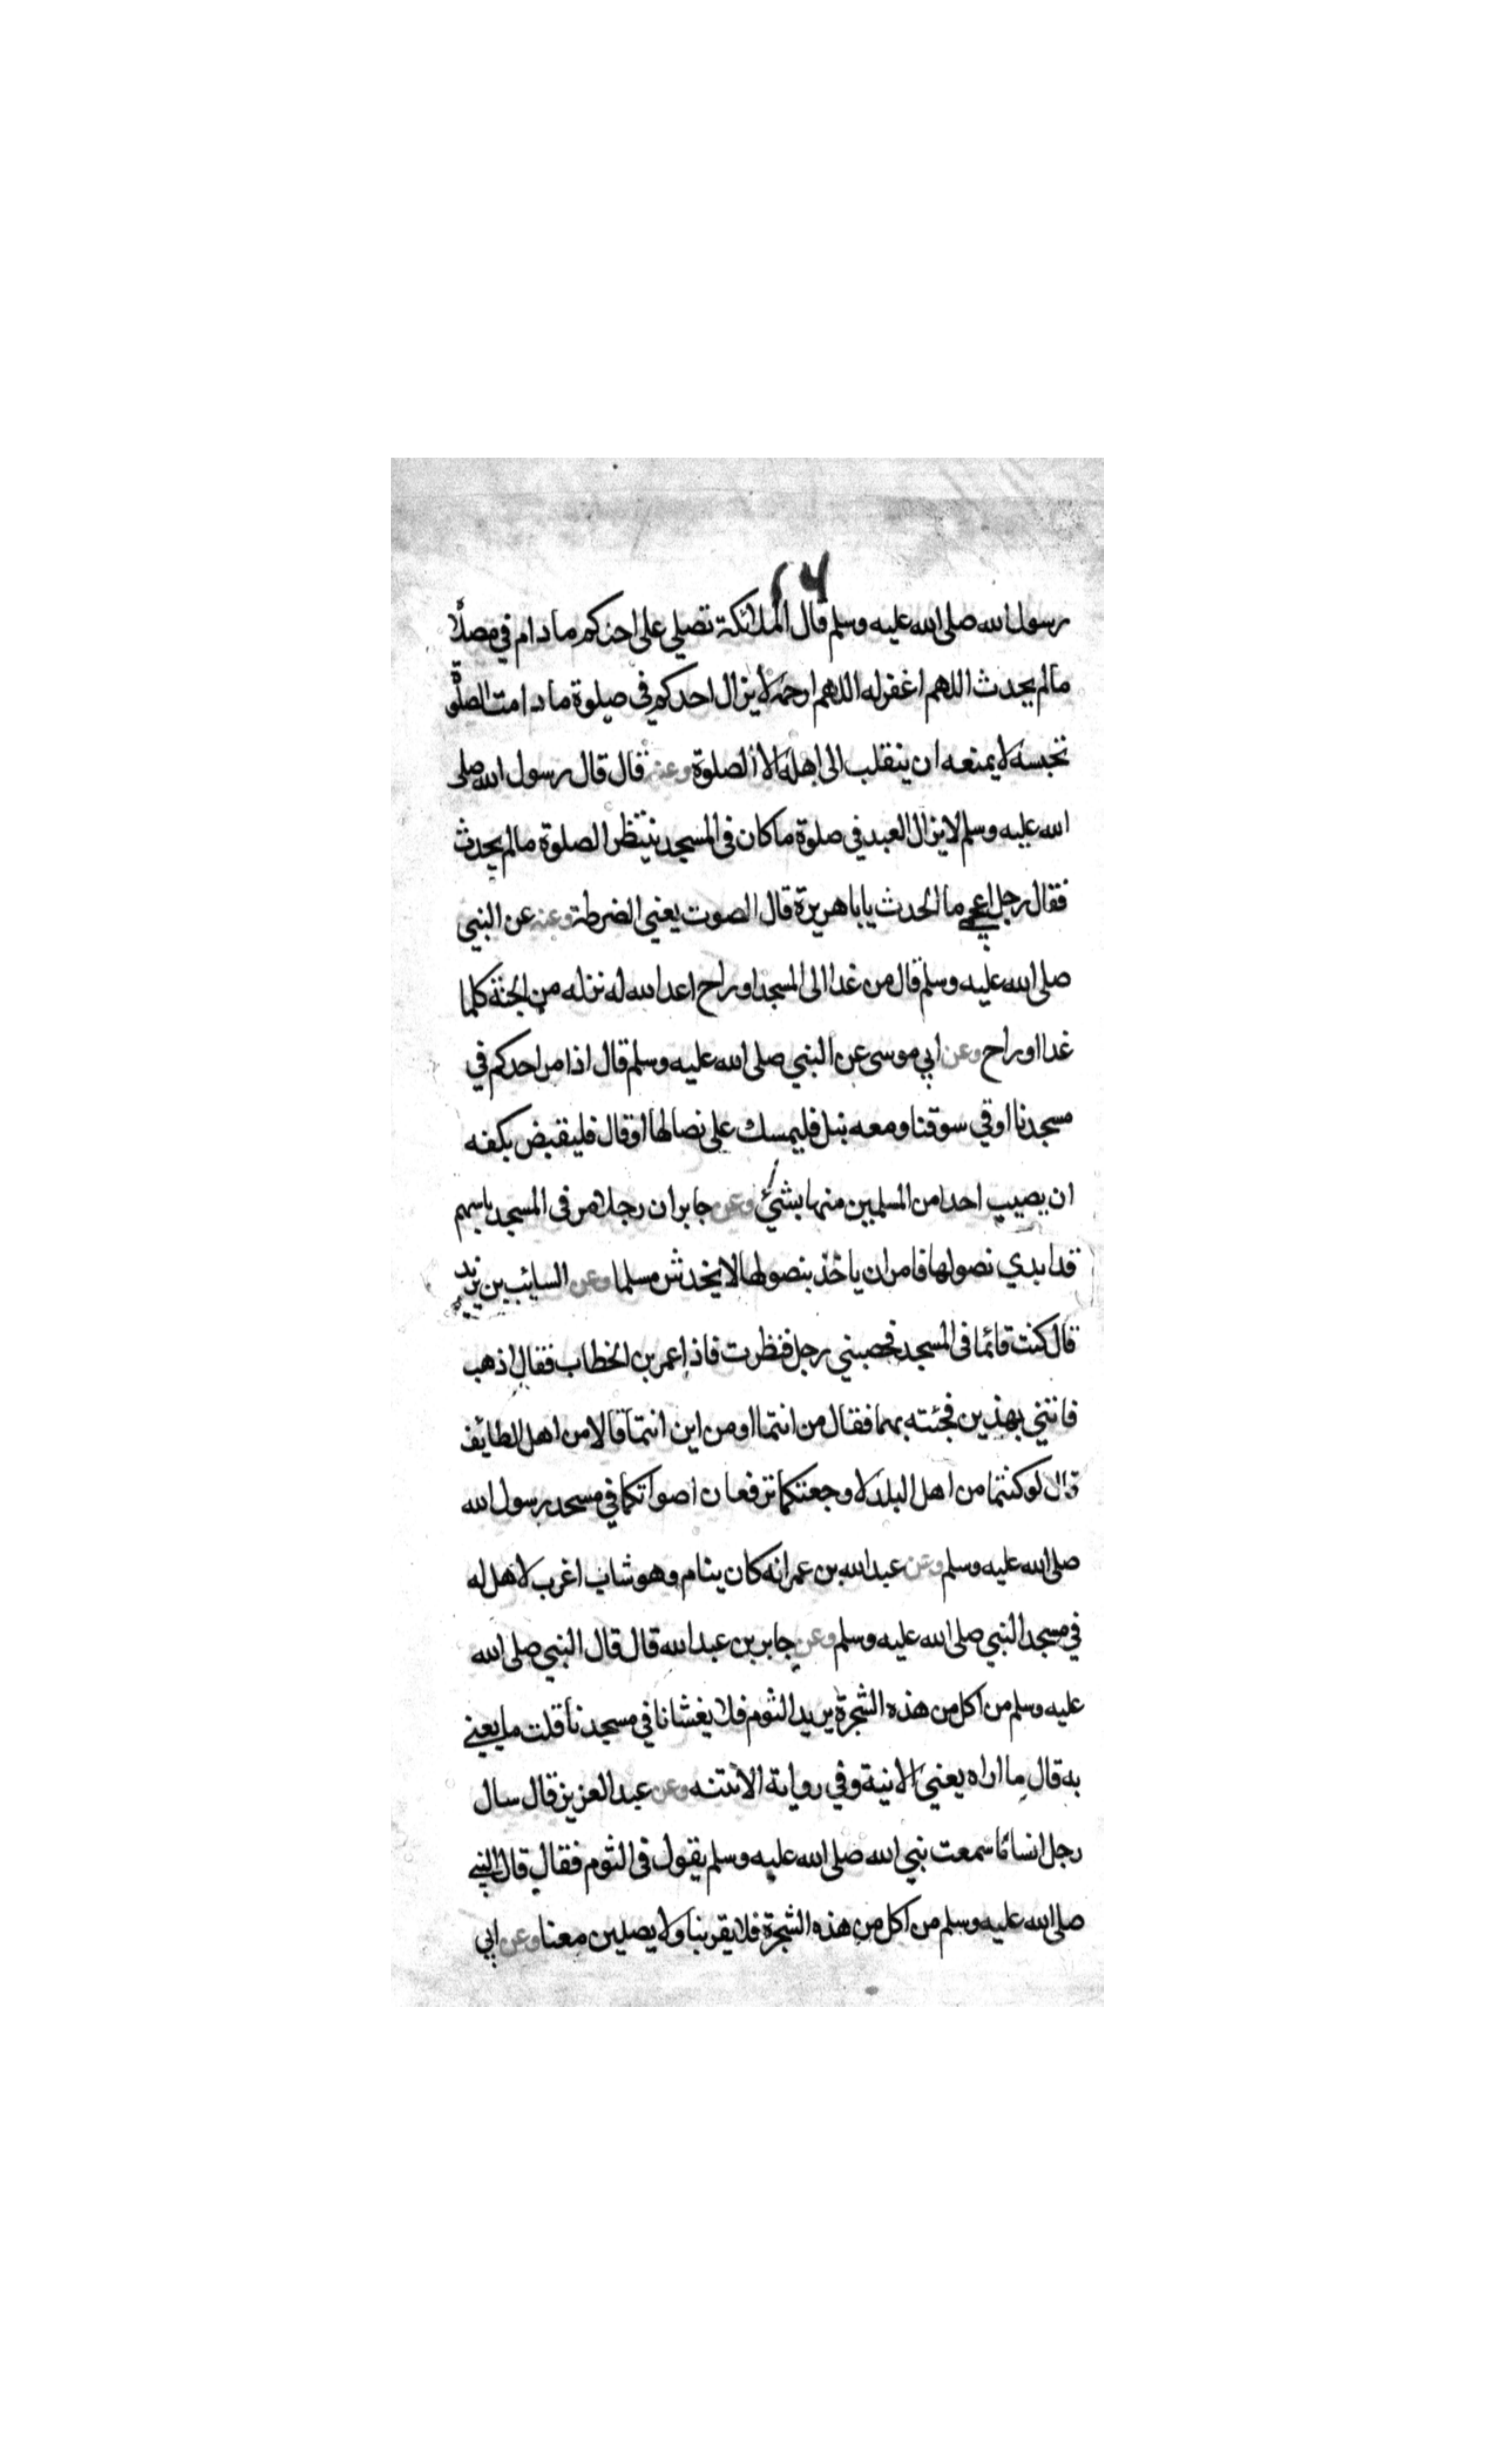 رسول الله صلى الله عليه وسلم قال الملائكة تصلي على احدكم ما دام في مصلا
مالم يحدث اللهم اغفر له اللهم ارحمه لا يزال احدكم في صلوة ما دامت الصلو
تحبسه لا يمنعه ان ينقلب الى اهله الا الصلوة وعنه قال قال رسول الله صلى
الله عليه وسلم لا يزال العبد في صلوة ما كان في المسجد ينتظر الصلوة مالم يحدث
فقال رجل اعجمي ما الحدث يابا هريرة قال الصوت يعني الضرطة وعنه عن النبي
صلى الله عليه وسلم قال من غدا الى المسجد او راح اعد الله له نزله من الجنة كلما
غدا او راح وعن ابي موسى عن النبي صلى الله عليه وسلم قال اذا مر احدكم في
مسجدنا او في سوقنا ومعه نبل فليمسك على نصالها او قال فليقبض بكفه
ان يصيب احدا من المسلمين منها بشئ وعن جابر ان رجلا مر في المسجد باسهم
قد ابدي نصولها فامر ان ياخذ بنصولها لا يخدش مسلما وعن السايب بن يزيد
قال كنت قائما في المسجد فحصبني رجل فنظرت فاذا عمر بن الخطاب فقال اذهب
فاتني بهذين فجئته بهما فقال من انتما او من اين انتما قالا من اهل الطائف
قال لو كنتما من اهل البلد لاوجعتكما ترفعان اصواتكما في مسجد رسول الله
صلى الله عليه وسلم وعن عبد الله بن عمر انه كان ينام وهو شاب اغرب لا اهل له
في مسجد النبي صلى الله عليه وسلم وعن جابر بن عبد الله قال قال النبي صلى الله
عليه وسلم من اكل من هذه الشجرة يريد الثوم فلا يغشانا في مسجدنا قلت ما يعني
به قال ما اراه يعني الا نية وفي رواية الا نتنه وعن عبد العزيز قال سال
رجل انسا ما سمعت نبي الله صلى الله عليه وسلم يقول في الثوم فقال قال النبي
صلى الله عليه وسلم من اكل من هذه الشجرة فلا يقربنا ولا يصلين معنا وعن ابي